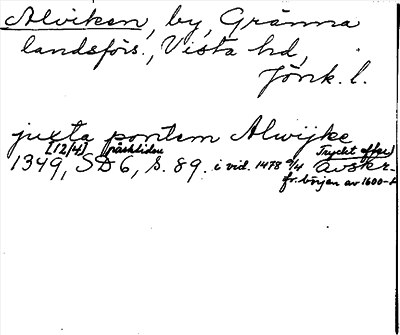 Alviken, by, Gränna
landsförs., Vista hd,
Jönk. l.
juxta pontem Alwijke
[12/4] påsktiden Tryckt efter
1349, SD 6, s. 89. i vid. 1478 9/4 avskr.
fr. början av 1600-t